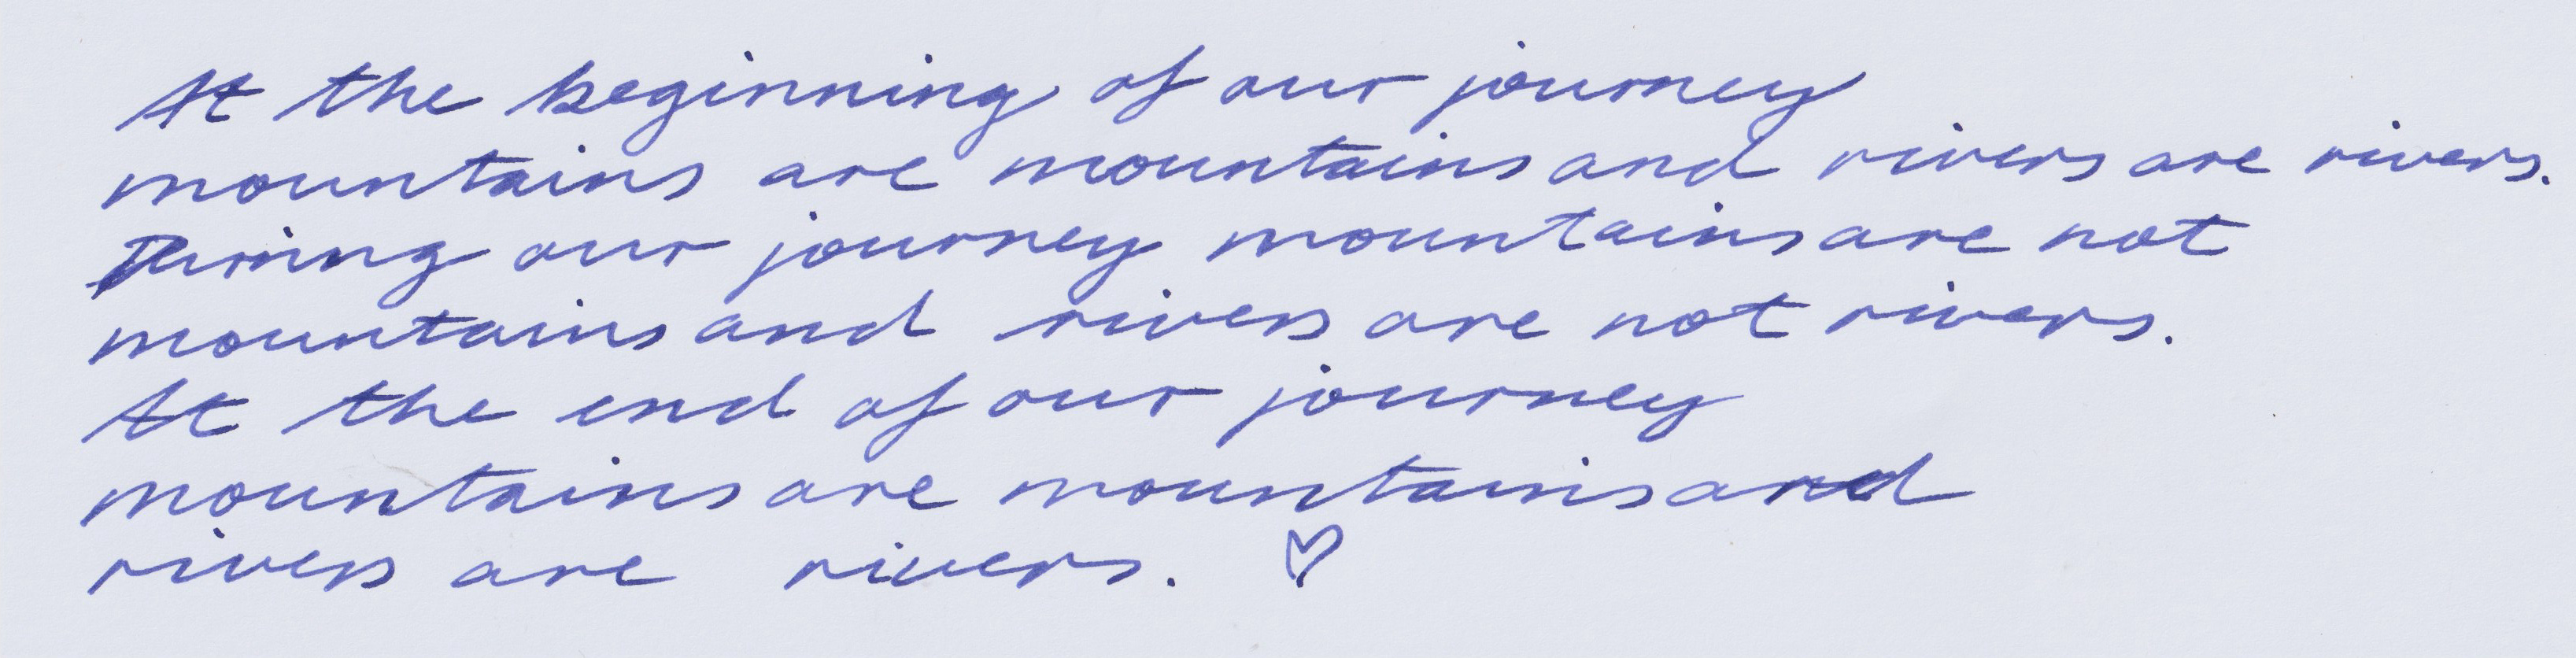 At the beginning of our journey
mountains are mountains and rivers are rivers.
During our journey mountains are not
mountains and rivers are not rivers.
At the end of our journey
mountains are mountains and
rivers are rivers. ♡